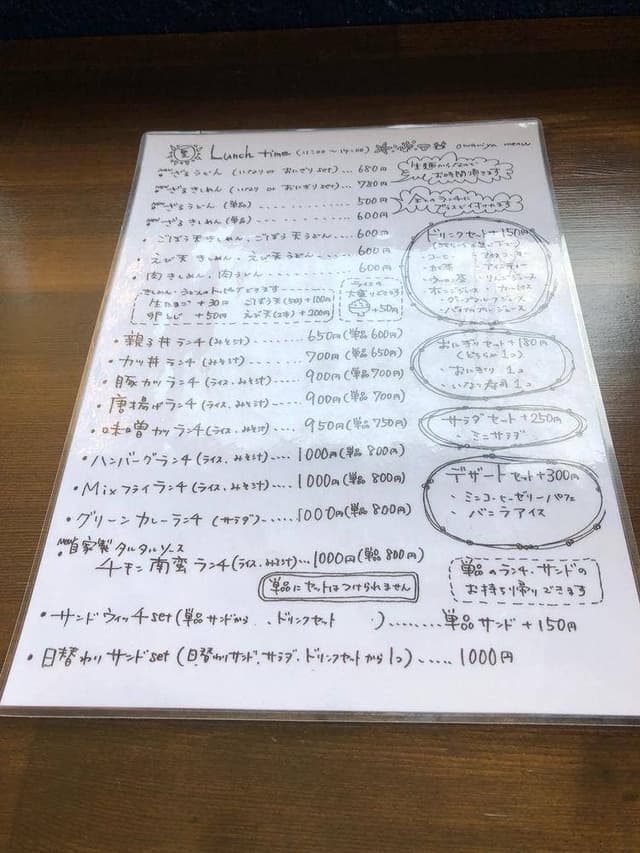 Lunch time (11:00〜14:00) owariya menu
new ざるうどん (いなり or おにぎり set) ... 680円
new ざるきしめん (いなり or おにぎり set) ... 780円
new ざるうどん (単品) ............ 500円
new ざるきしめん (単品) ............ 600円
・ごぼう天きしめん・ごぼう天うどん..... 600円
・えび天きしめん・えび天うどん..... 600円
・肉きしめん・肉うどん........... 600円
きしめん・うどんのトッピングできます
生たまご +30円 ごぼう天(5切)+100円
卵とじ +50円 えび天(2本)+200円
ライスの
大盛りできます
+50円
・親子丼ランチ(みそ汁)......... 650円(単品600円)
・カツ丼ランチ(みそ汁)......... 700円(単品650円)
・豚カツランチ(ライス、みそ汁)..... 900円(単品700円)
・唐揚げランチ(ライス、みそ汁)..... 900円(単品700円)
・味噌カツランチ(ライス、みそ汁).... 950円(単品750円)
・ハンバーグランチ(ライス、みそ汁).... 1000円(単品800円)
・Mixフライランチ(ライス、みそ汁)..... 1000円(単品800円)
・グリーンカレーランチ (サラダ)..... 1000円(単品800円)
new 自家製タルタルソース
チキン南蛮ランチ(ライス、みそ汁)... 1000円(単品800円)
単品にセットはつけられません
・サンドウィッチset(単品サンドから ドリンクセット )........ 単品サンド+150円
・日替わりサンドset(日替わりサンド、サラダ、ドリンクセットから1コ)..... 1000円
お時間頂きます
全てのランチに
プラスで付けれます
ドリンクセット+150円
・コーヒー
・紅茶
・ウーロン茶
・オレンジジュース
・カルピス
・グレープフルーツジュース
・パイナップルジュース
おにぎりセット+180円
(どちらか1コ)
・おにぎり 1コ
・いなり寿司1コ
サラダセット+250円
・ミニサラダ
デザートセット+300円
・ミニコーヒーゼリーパフェ
・バニラアイス
単品のランチ、サンドの
お持ち帰りできます